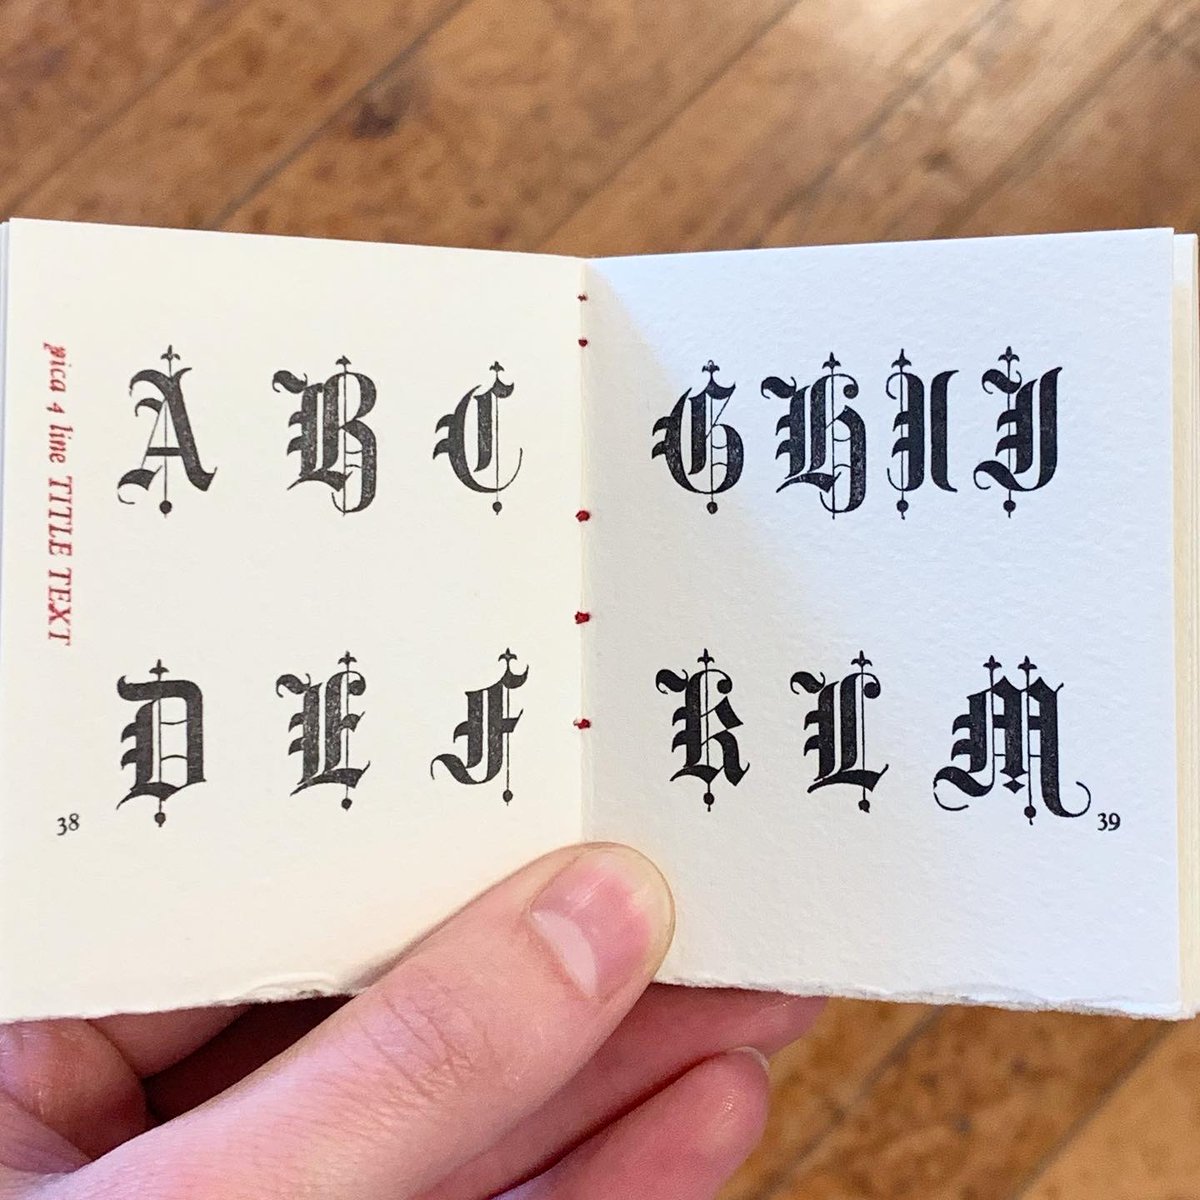 pica 4 line TITLE TEXT
A B C
D E F
38
G H I J
K L M
39